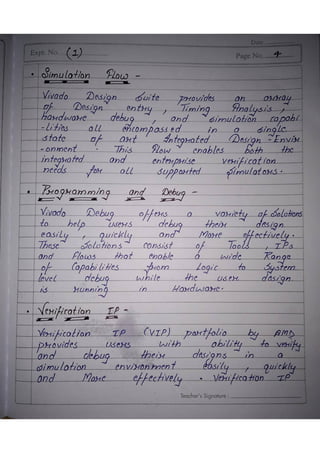 Date
Expt. No. (1)
Page No. 4
• Simulation Flow -
Vivado Design Suite provides an array
of Design entry, Timing Analysis,
hardware debug, and simulation capabi
-lities all encompassed in a single
state of art Integrated Design - Envir
-onment. This flow enables both the
integrated and enterprise verification
needs for all supported simulators.
• Programming and Debug -
Vivado Debug offers a variety of solutions
to help users debug their design
easily, quickly and More effectively.
These Solutions consist of Tools, IPs
and Flows that enable a wide Range
of Capabilities from Logic to System
level debug while the user design
is running in Hardware.
• Verification IP -
Verification IP (VIP) portfolio by AMD
provides users with ability to verify
and debug their designs in a
simulation environment easily, quickly
and More effectively. Verification IP
Teacher's Signature